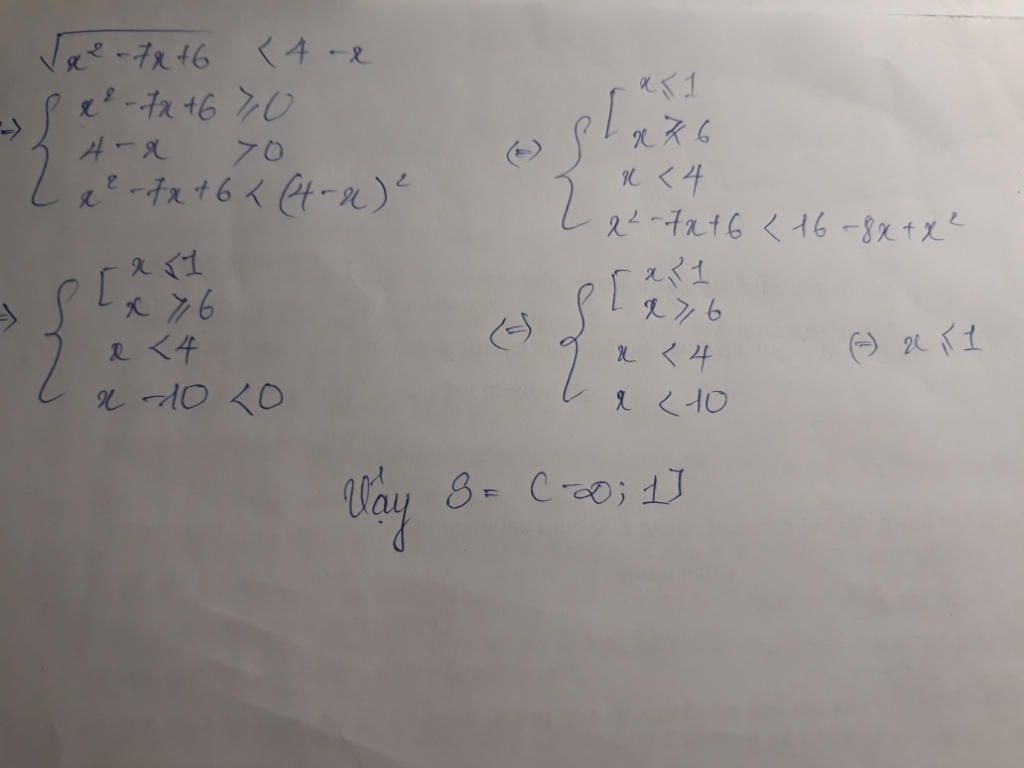 √(x² - 7x + 6) < 4 - x
=> { x² - 7x + 6 ≥ 0
4 - x > 0
x² - 7x + 6 < (4 - x)²
(=) { [ x ≤ 1
x ≥ 6
x < 4
x² - 7x + 6 < 16 - 8x + x²
=> { [ x ≤ 1
x ≥ 6
x < 4
x - 10 < 0
(=) { [ x ≤ 1
x ≥ 6
x < 4
x < 10
(=) x ≤ 1
Vậy S = (-∞; 1]